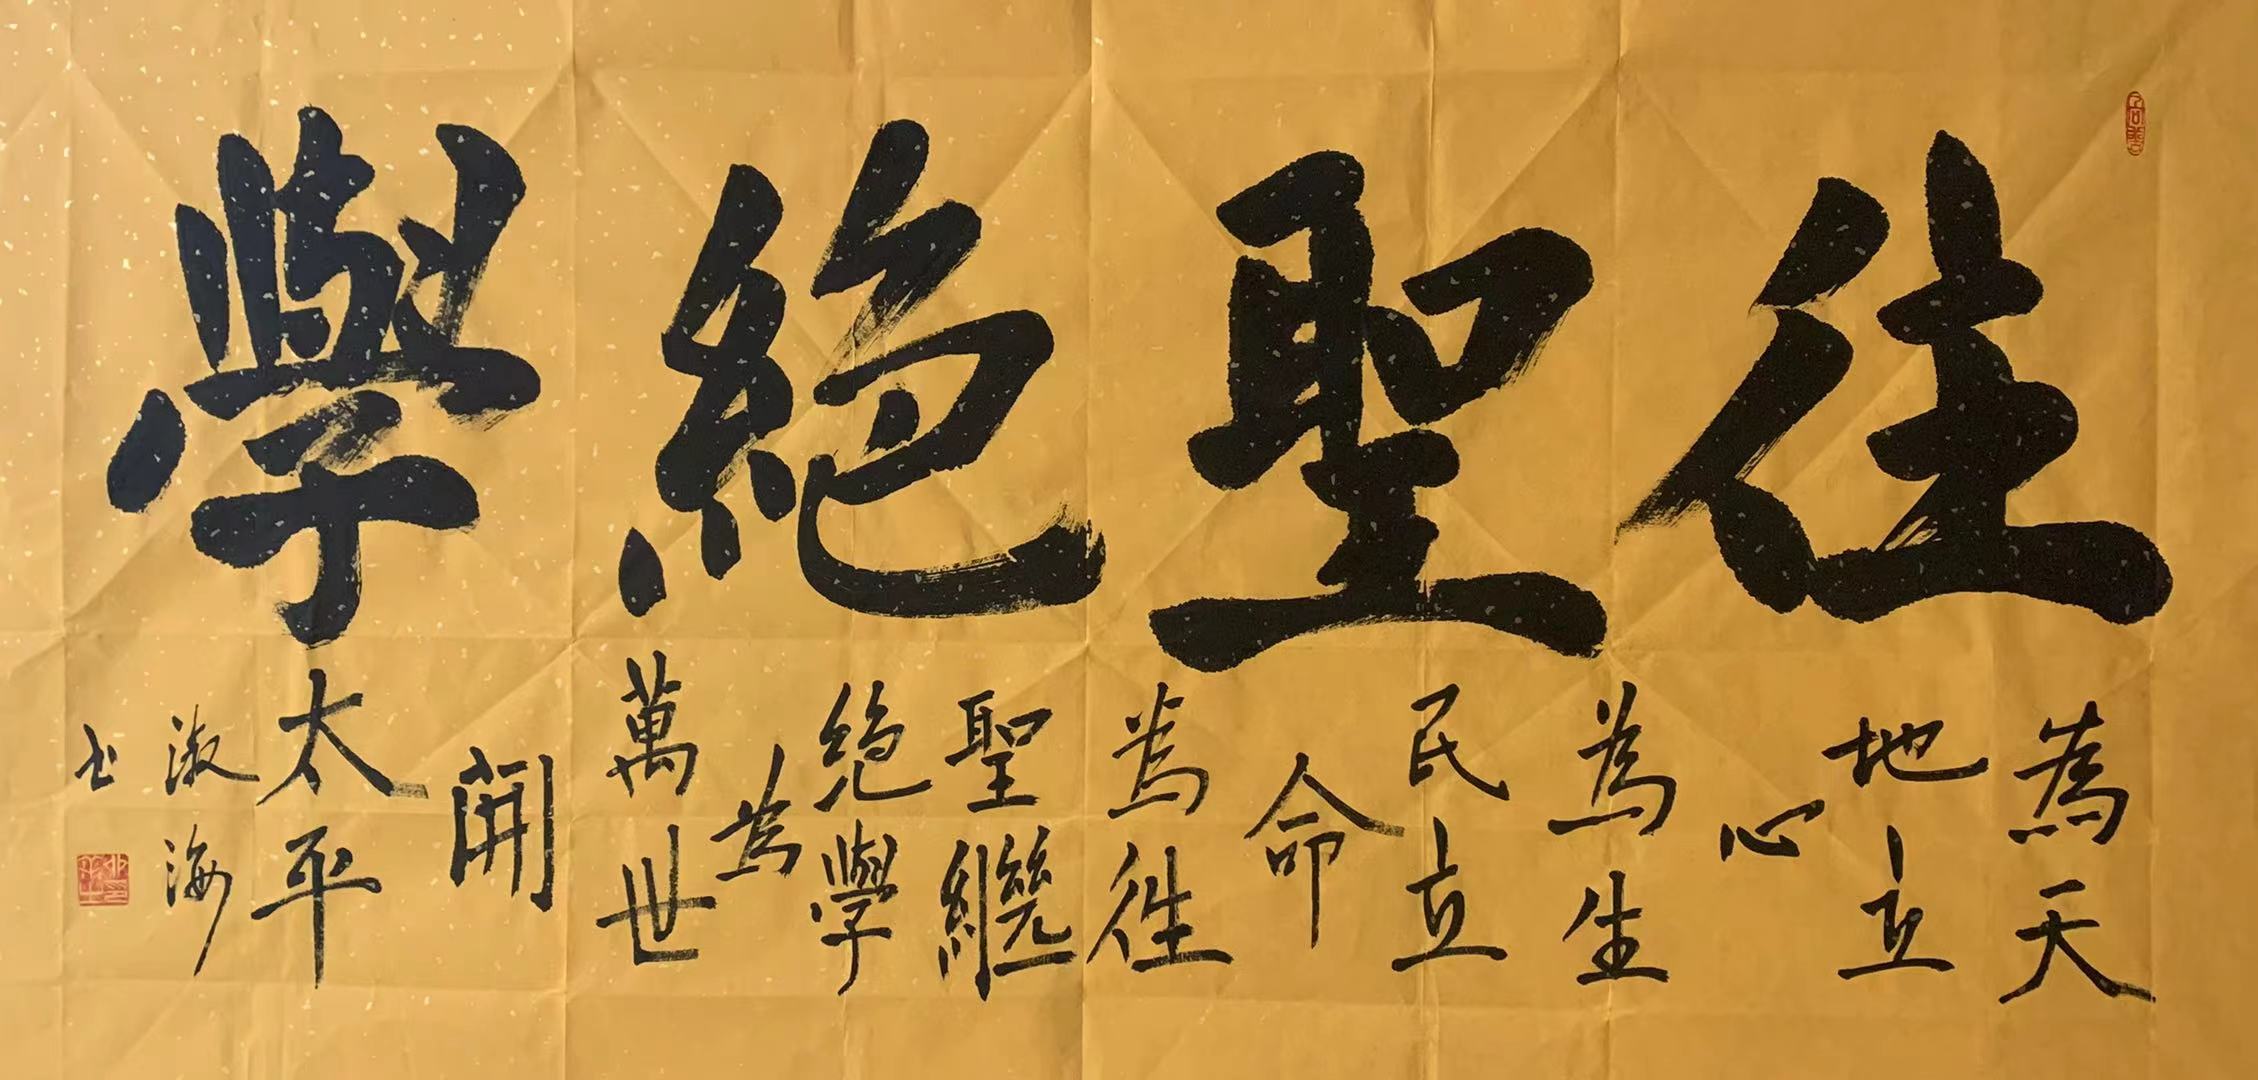 徃聖絶學
為天
地立
心
為生
民立
命
為徃
聖繼
絶學
為
萬世
開
太平
淑海
书